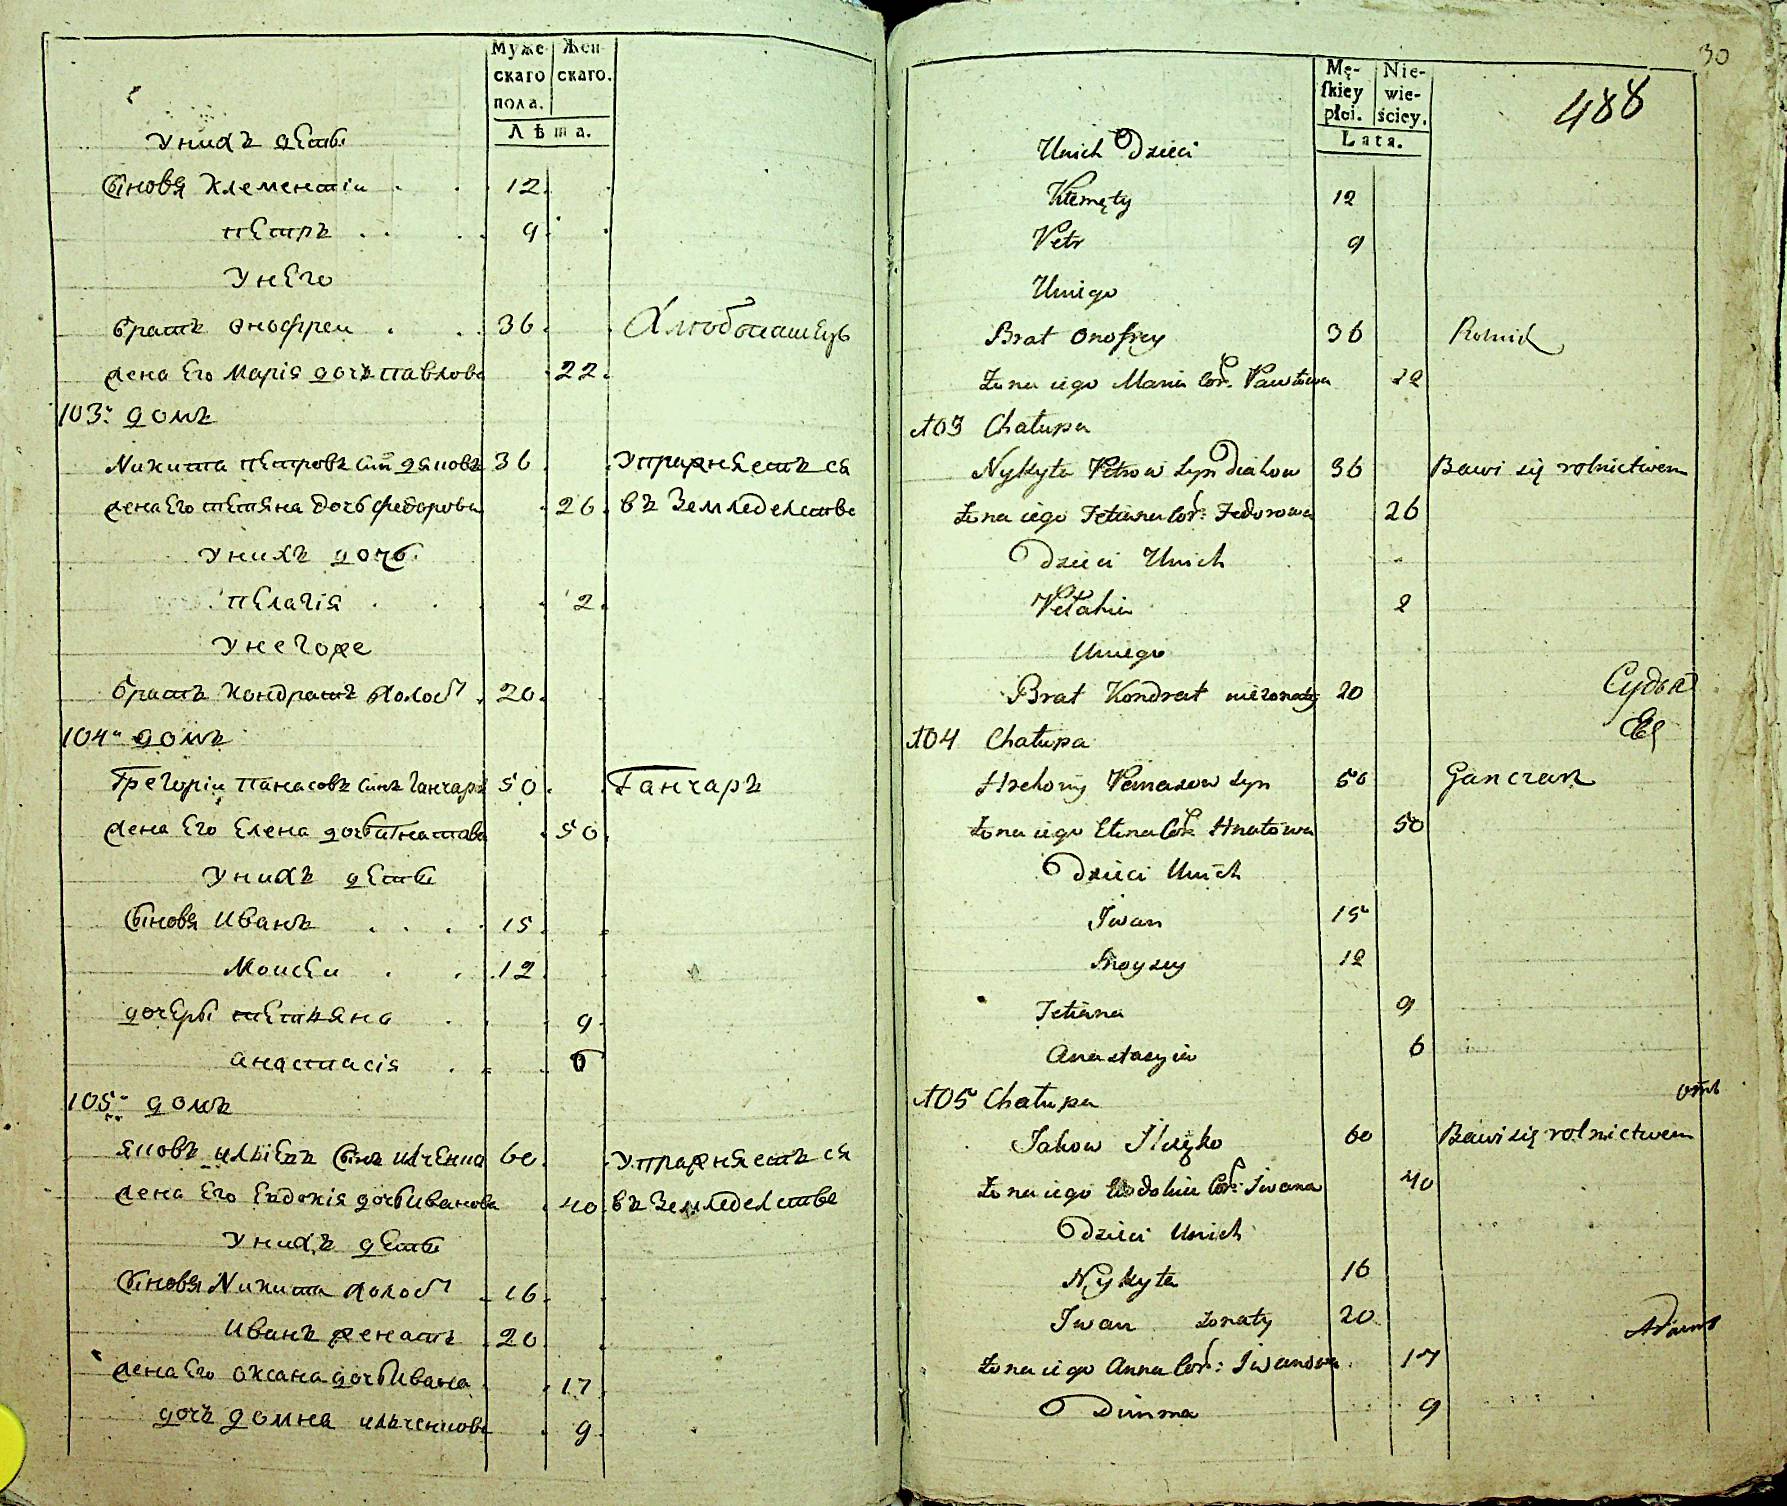 Муже-скаго пола.
Жен-скаго.
Лѣта.
Унихъ дѣти
Сыновя Климентіи 12
Петръ 9
Унего
братъ Онофреи 36 Хлюбопашецъ
жена его Марія дочь Павлова 22
103. домъ
Никита Петровъ сынъ Дяковъ 36 упражняетъся
жена его Тетяна дочь Федорова 26 въ Земледелстве
Унихъ дочь
Пелагія 2
Унегоже
братъ Кондратъ холост 20
104. домъ
Грегоріи Панасовъ синъ Ганчаръ 50 Ганчаръ
жена его Елена дочь Игнатова 50
Унихъ дѣти
Сыновя Иванъ 15
Моисеи 12
дочеры Тетяна 9
Анастасія 6
105. домъ
Яковъ сынъ 60 упражняетъся
жена его Евдокія дочь Иванова 40 въ Земледелстве
Унихъ дѣти
Сыновя Никита холост 16
Иванъ женатъ 20
жена его Оксана дочь Ивана 17
дочь Домна 9
30
Mę-skiey płci.
Nie-wie-ściey.
Lata.
488
Unich Dzieci
Klemęty 12
Petr 9
Uniego
Brat Onofrey 36 Rolnik
Żona iego Maria Cór: Pawłowa 22
103 Chałupa
Nykyta Petrow Syn Diakow 36 Bawi się rolnictwem
Żona iego Tetiana Cór: Fedorowa 26
Dzieci Unich
Pełahia 2
Uniego
Brat Kondrat nieżonaty 20
Судья
104 Chałupa
Hrehory Panasow Syn 50 Ganczarz
Żona iego Elena Cór: Hnatowa 50
Dzieci Unich
Iwan 15
Moysey 12
Tetiana 9
Anastazyia 6
105 Chałupa
Jakow 60 Bawi się rolnictwem
Żona iego Ewdokia Cór: Iwana 40
Dzieci Unich
Nykyta 16
Iwan żonaty 20
Żona iego Anna Cór: Iwanowa 17
Dimna 9